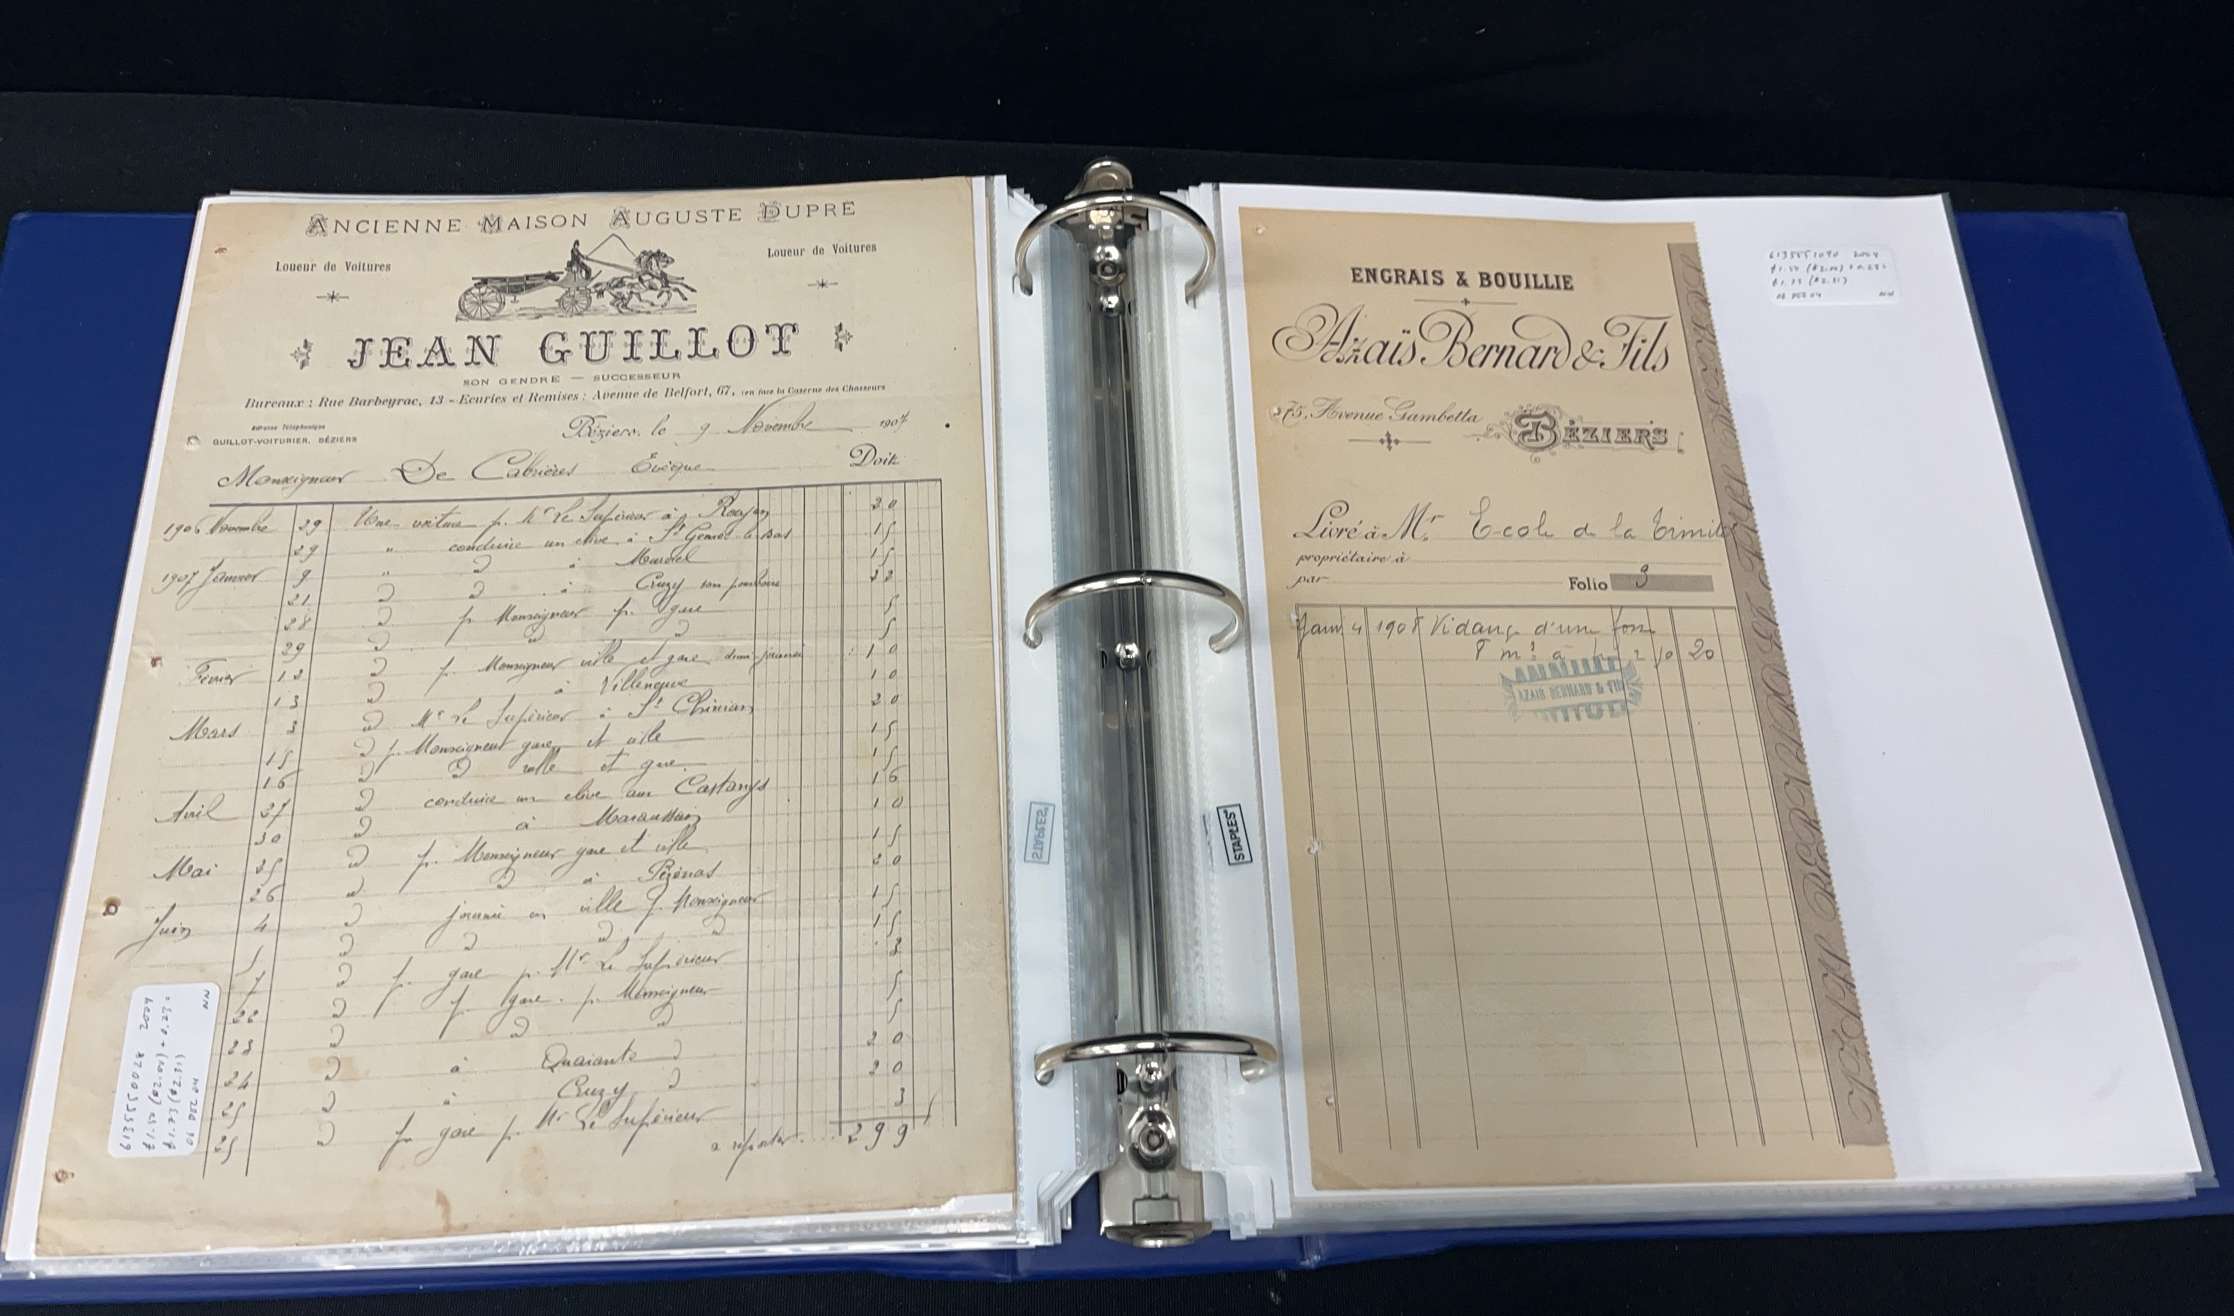 ANCIENNE MAISON AUGUSTE DUPRE
Loueur de Voitures
Loueur de Voitures
JEAN GUILLOT
SON GENDRE — SUCCESSEUR
Bureaux : Rue Barbeyrac, 13 - Ecuries et Remises : Avenue de Belfort, 67, (en face la Caserne des Chasseurs
Adresse Téléphonique
GUILLOT-VOITURIER, BÉZIERS
Béziers, le 9 Novembre 1907
Monseigneur De Cabrières Evêque Doit
1906 Novembre 29 Une voiture p. Mr Le Supérieur à Roujan 20
29 " conduire un élève à St Geniès le Bas 15
1907 Janvier 9 " " à 15
21 " " à Cruzy 32
28 " p. Monseigneur p. gare 5
29 " " " 5
Février 12 " p. Monseigneur ville et gare 10
13 " à Villeneuve 10
Mars 3 " Mr Le Supérieur à St Chinian 20
15 " p. Monseigneur gare et ville 15
16 " " ville et gare 15
Avril 27 " conduire un élève aux Castans 16
30 " à Maraussan 10
Mai 25 " p. Monseigneur gare et ville 15
26 " " à Pézenas 20
Juin 4 " journée en ville p. Monseigneur 15
5 " " " " 15
7 " p. gare p. Mr Le Supérieur 3
22 " p. gare p. Monseigneur 5
23 " " " 5
24 " à Quarante " 20
25 " à Cruzy " 20
25 " p. gare p. Mr Le Supérieur 3
a reporter 299
61355550078 2004
NN
STAPLES
STAPLES
ENGRAIS & BOUILLIE
Azaïs Bernard & Fils
75, Avenue Gambetta
BÉZIERS
Livré à Mr Ecole de la Trinité
propriétaire à
par
Folio 3
Janv 4 1908 Vidange d'une fosse
8 m3 à 20
AZAIS BERNARD & FILS
2004
NN